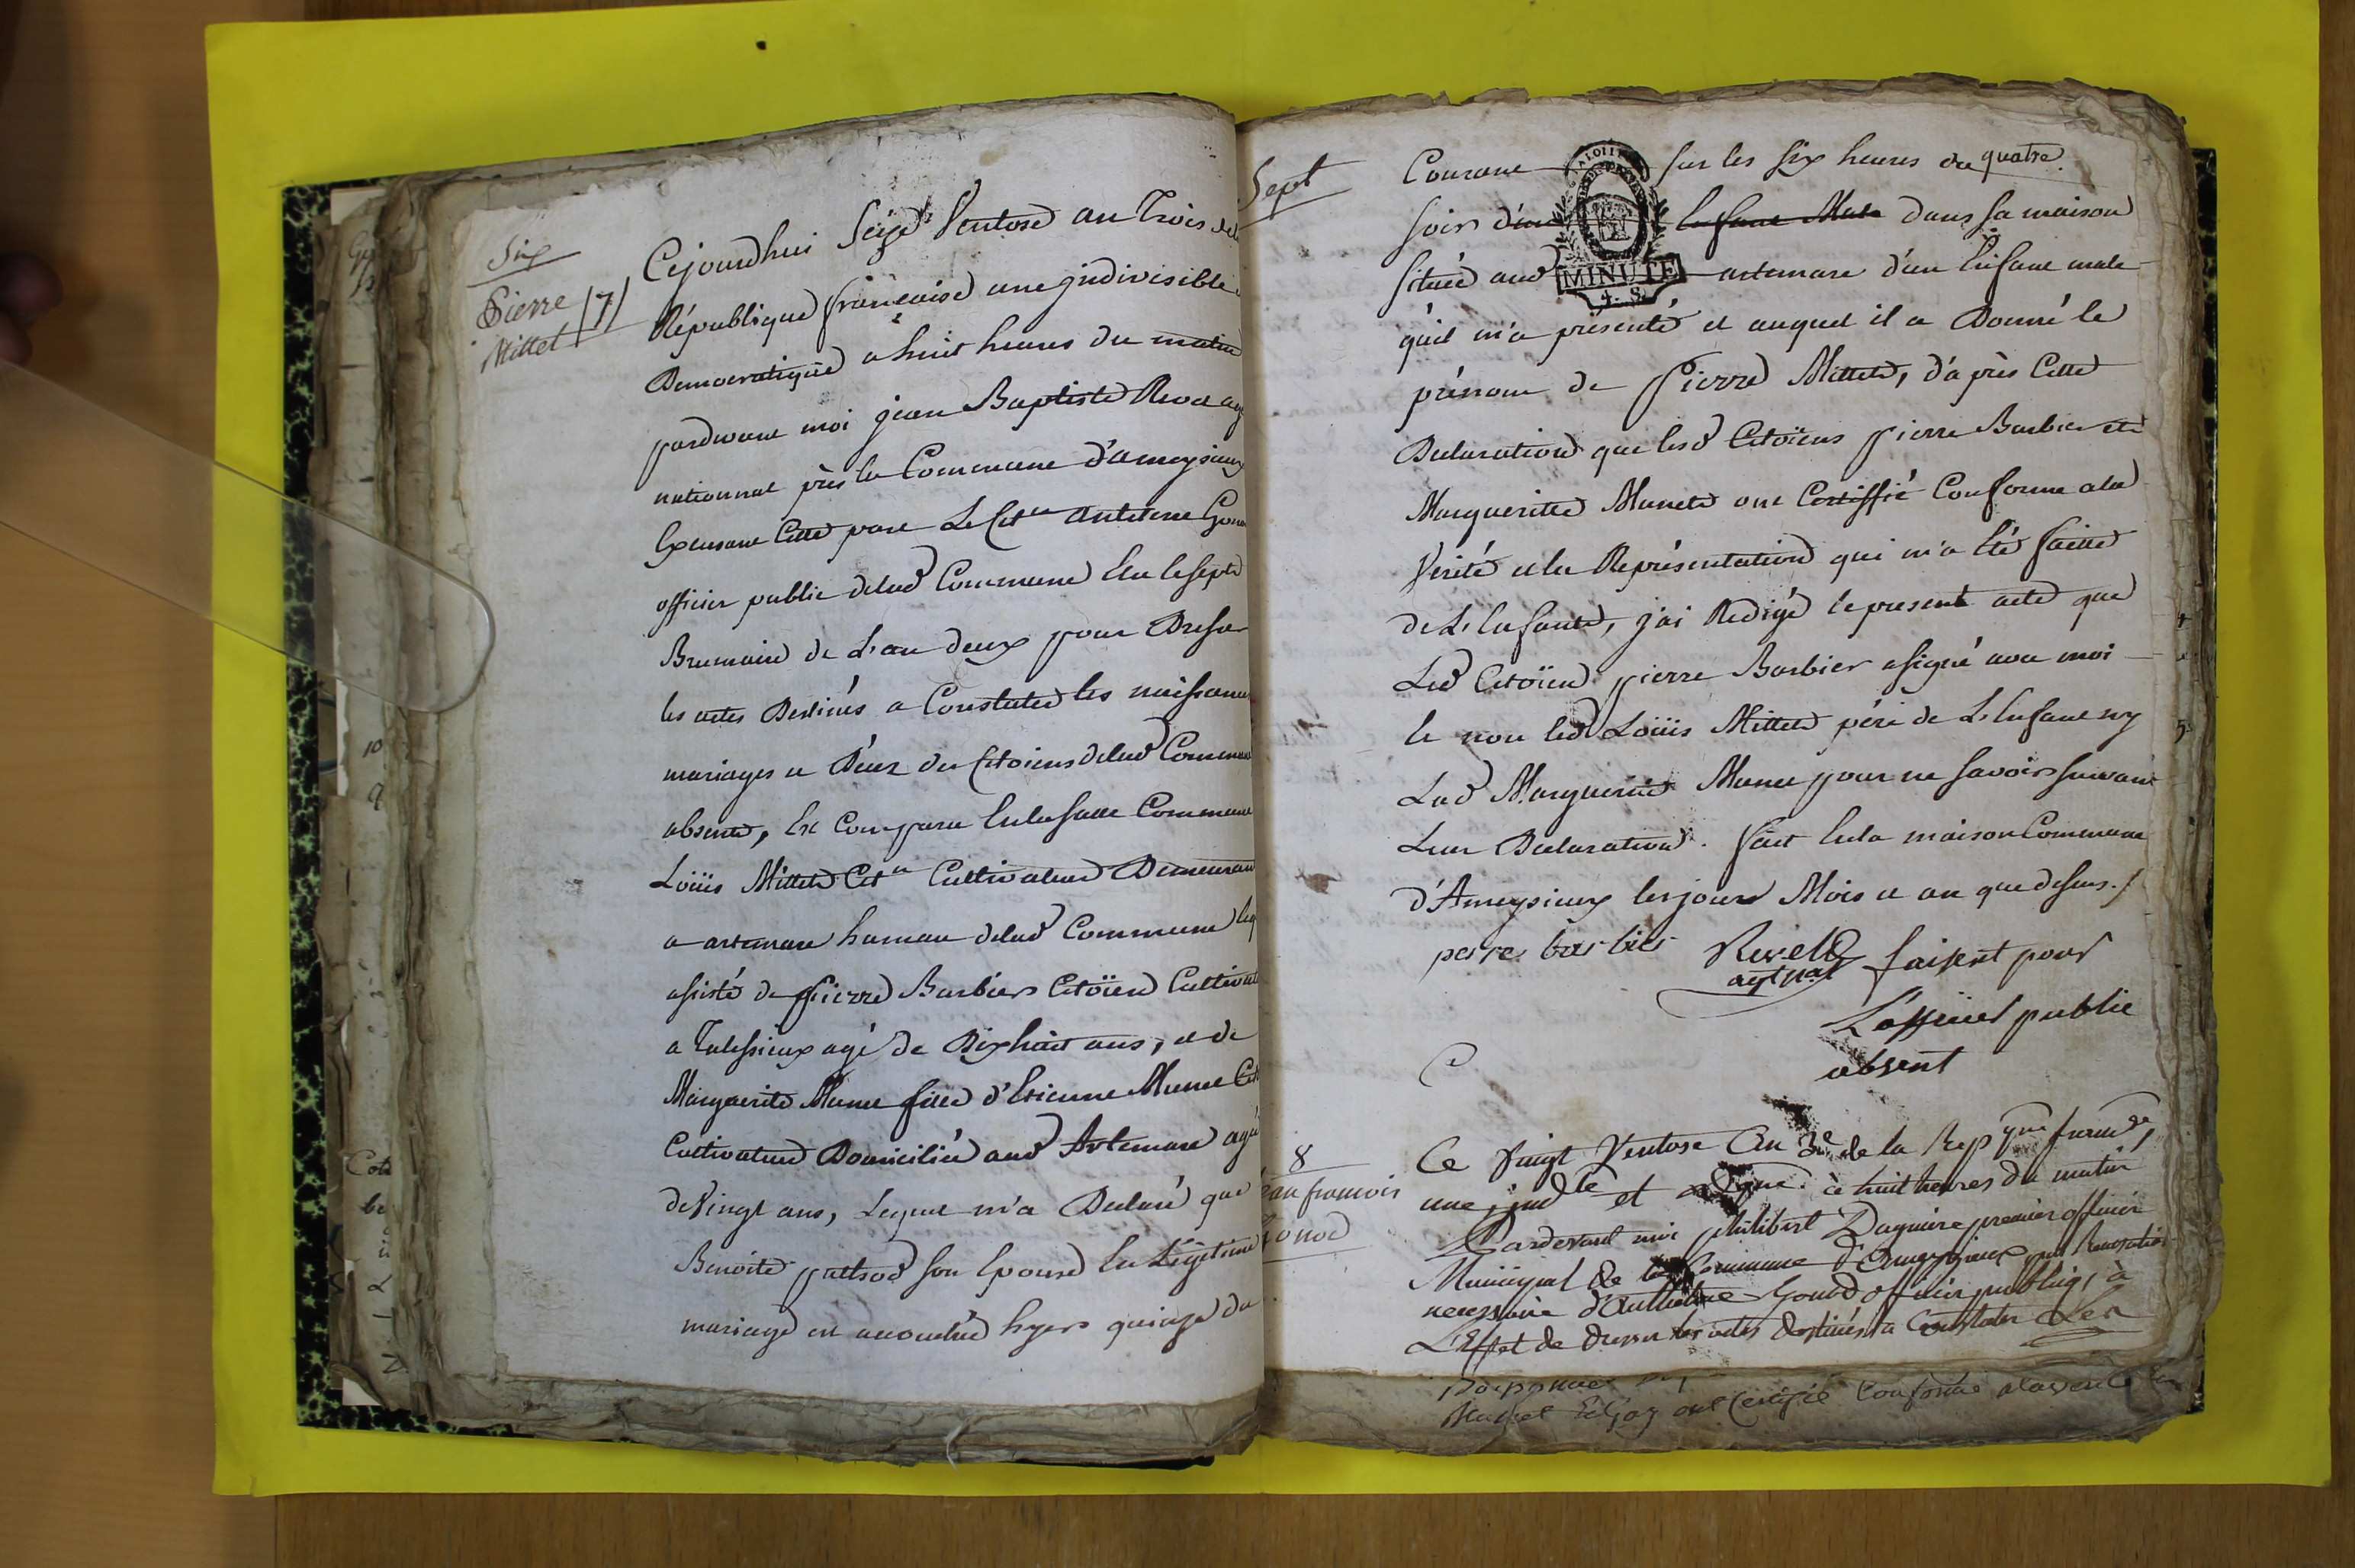 Six
Pierre
Millet
7
Cejourdhui Seize Ventose an Trois
République françaisse une jndivisible
Democratique a huit heures du matin
pardevant moi jean Baptiste Revel
nationnal près la Commune d'ameysieux
Exersant Cette part Le Cit.en Antelme
officier public delad Commune Elu le Sept
Brumaire de L'an deux pour Dresser
les actes Destinés a Constater les naissances
mariages et Décez des Citoiens delad Commune
absente, Est Comparu En la salle Commune
Loüis Millet Cit.en Cultivateur Demeurant
a artemare hameau delad Commune
assisté de pierre Barbier Citoïen Cultivat
a Talissieux agé de Dix huit ans, et de
Marguerite Munet fille d'Etienne Munet
Cultivateur Domicilié aud Artemare agé
de Vingt ans, Lequel m'a Declaré que
Benoite son Epouse En Légitime
mariage est accouchée hyers quinze du
Sept
quatre
Courant sur les six heures du
soir d'un Enfant Male dans sa maison
située aud artemare d'un Enfant male
MINUTE
4. S.
qu'il m'a présenté et auquel il a Donné le
prénom de Pierre Millet, d'après Cette
Declaration que lesd Citoïens pierre Barbier et
Margueritte Munet ont Certiffié Conforme a la
Vérité et la Représentation qui m'a Eté faitte
de L'Enfant, j'ai Redigé le present acte que
Led Citoïen pierre Barbier a signé avec moi
le non led Loüis Millet péré de L'Enfant ny
Lad Marguerite Munet pour ne savoir suivant
Leur Declaration. fait En la maison Commune
d'Ameysieux les jour Mois et an que dessus./
Revel faisent pour
agt nal
L'officier public
absent
8
jean francois
Ce Vingt Ventose An 3e de la Rep que franse,
une, jnd le et à huit heures du matin
Pardevant moi philibert Daguiere premier officier
Municipal de la Commune d'Ameyzieux
necessaire d'Anthelme Gonod officier public, à
L'Effet de dresser les actes destinés a Constater Les
ont Certifié Conforme